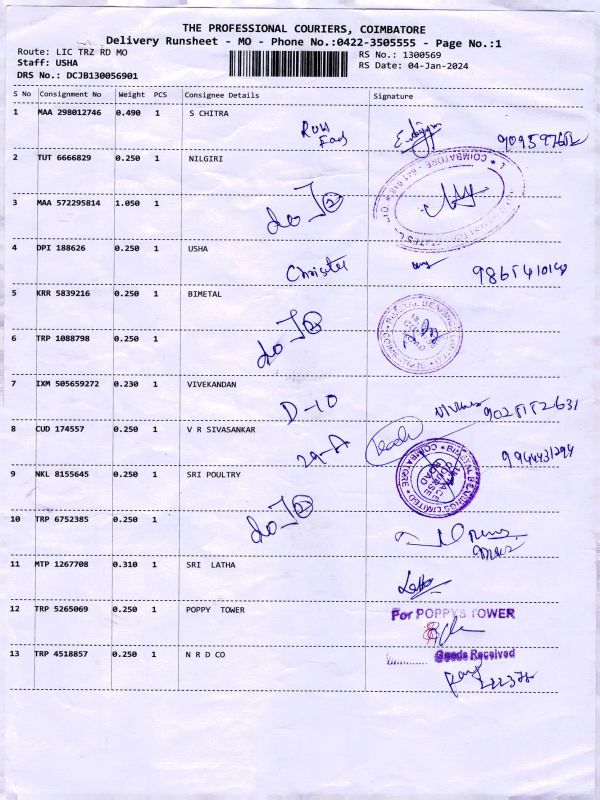 THE PROFESSIONAL COURIERS, COIMBATORE
Delivery Runsheet - MO - Phone No.:0422-3505555 - Page No.:1
Route: LIC TRZ RD MO
RS No.: 1300569
Staff: USHA
RS Date: 04-Jan-2024
DRS No.: DCJB130056901
S No Consignment No Weight PCS Consignee Details Signature
1 MAA 298012746 0.490 1 S CHITRA
2 TUT 6666829 0.250 1 NILGIRI
COIMBATORE
3 MAA 572295814 1.050 1
do
4 DPI 188626 0.250 1 USHA
5 KRR 5839216 0.250 1 BIMETAL
BIMETAL BEARINGS LIMITED
do
6 TRP 1088798 0.250 1
7 IXM 505659272 0.230 1 VIVEKANDAN
D-10
8 CUD 174557 0.250 1 V R SIVASANKAR
29-A
9944431294
9 NKL 8155645 0.250 1 SRI POULTRY
BIMETAL BEARINGS LIMITED
COIMBATORE
do
10 TRP 6752385 0.250 1
11 MTP 1267708 0.310 1 SRI LATHA
Latha
12 TRP 5265069 0.250 1 POPPY TOWER
For POPPYS TOWER
13 TRP 4518857 0.250 1 N R D CO
Goods Received